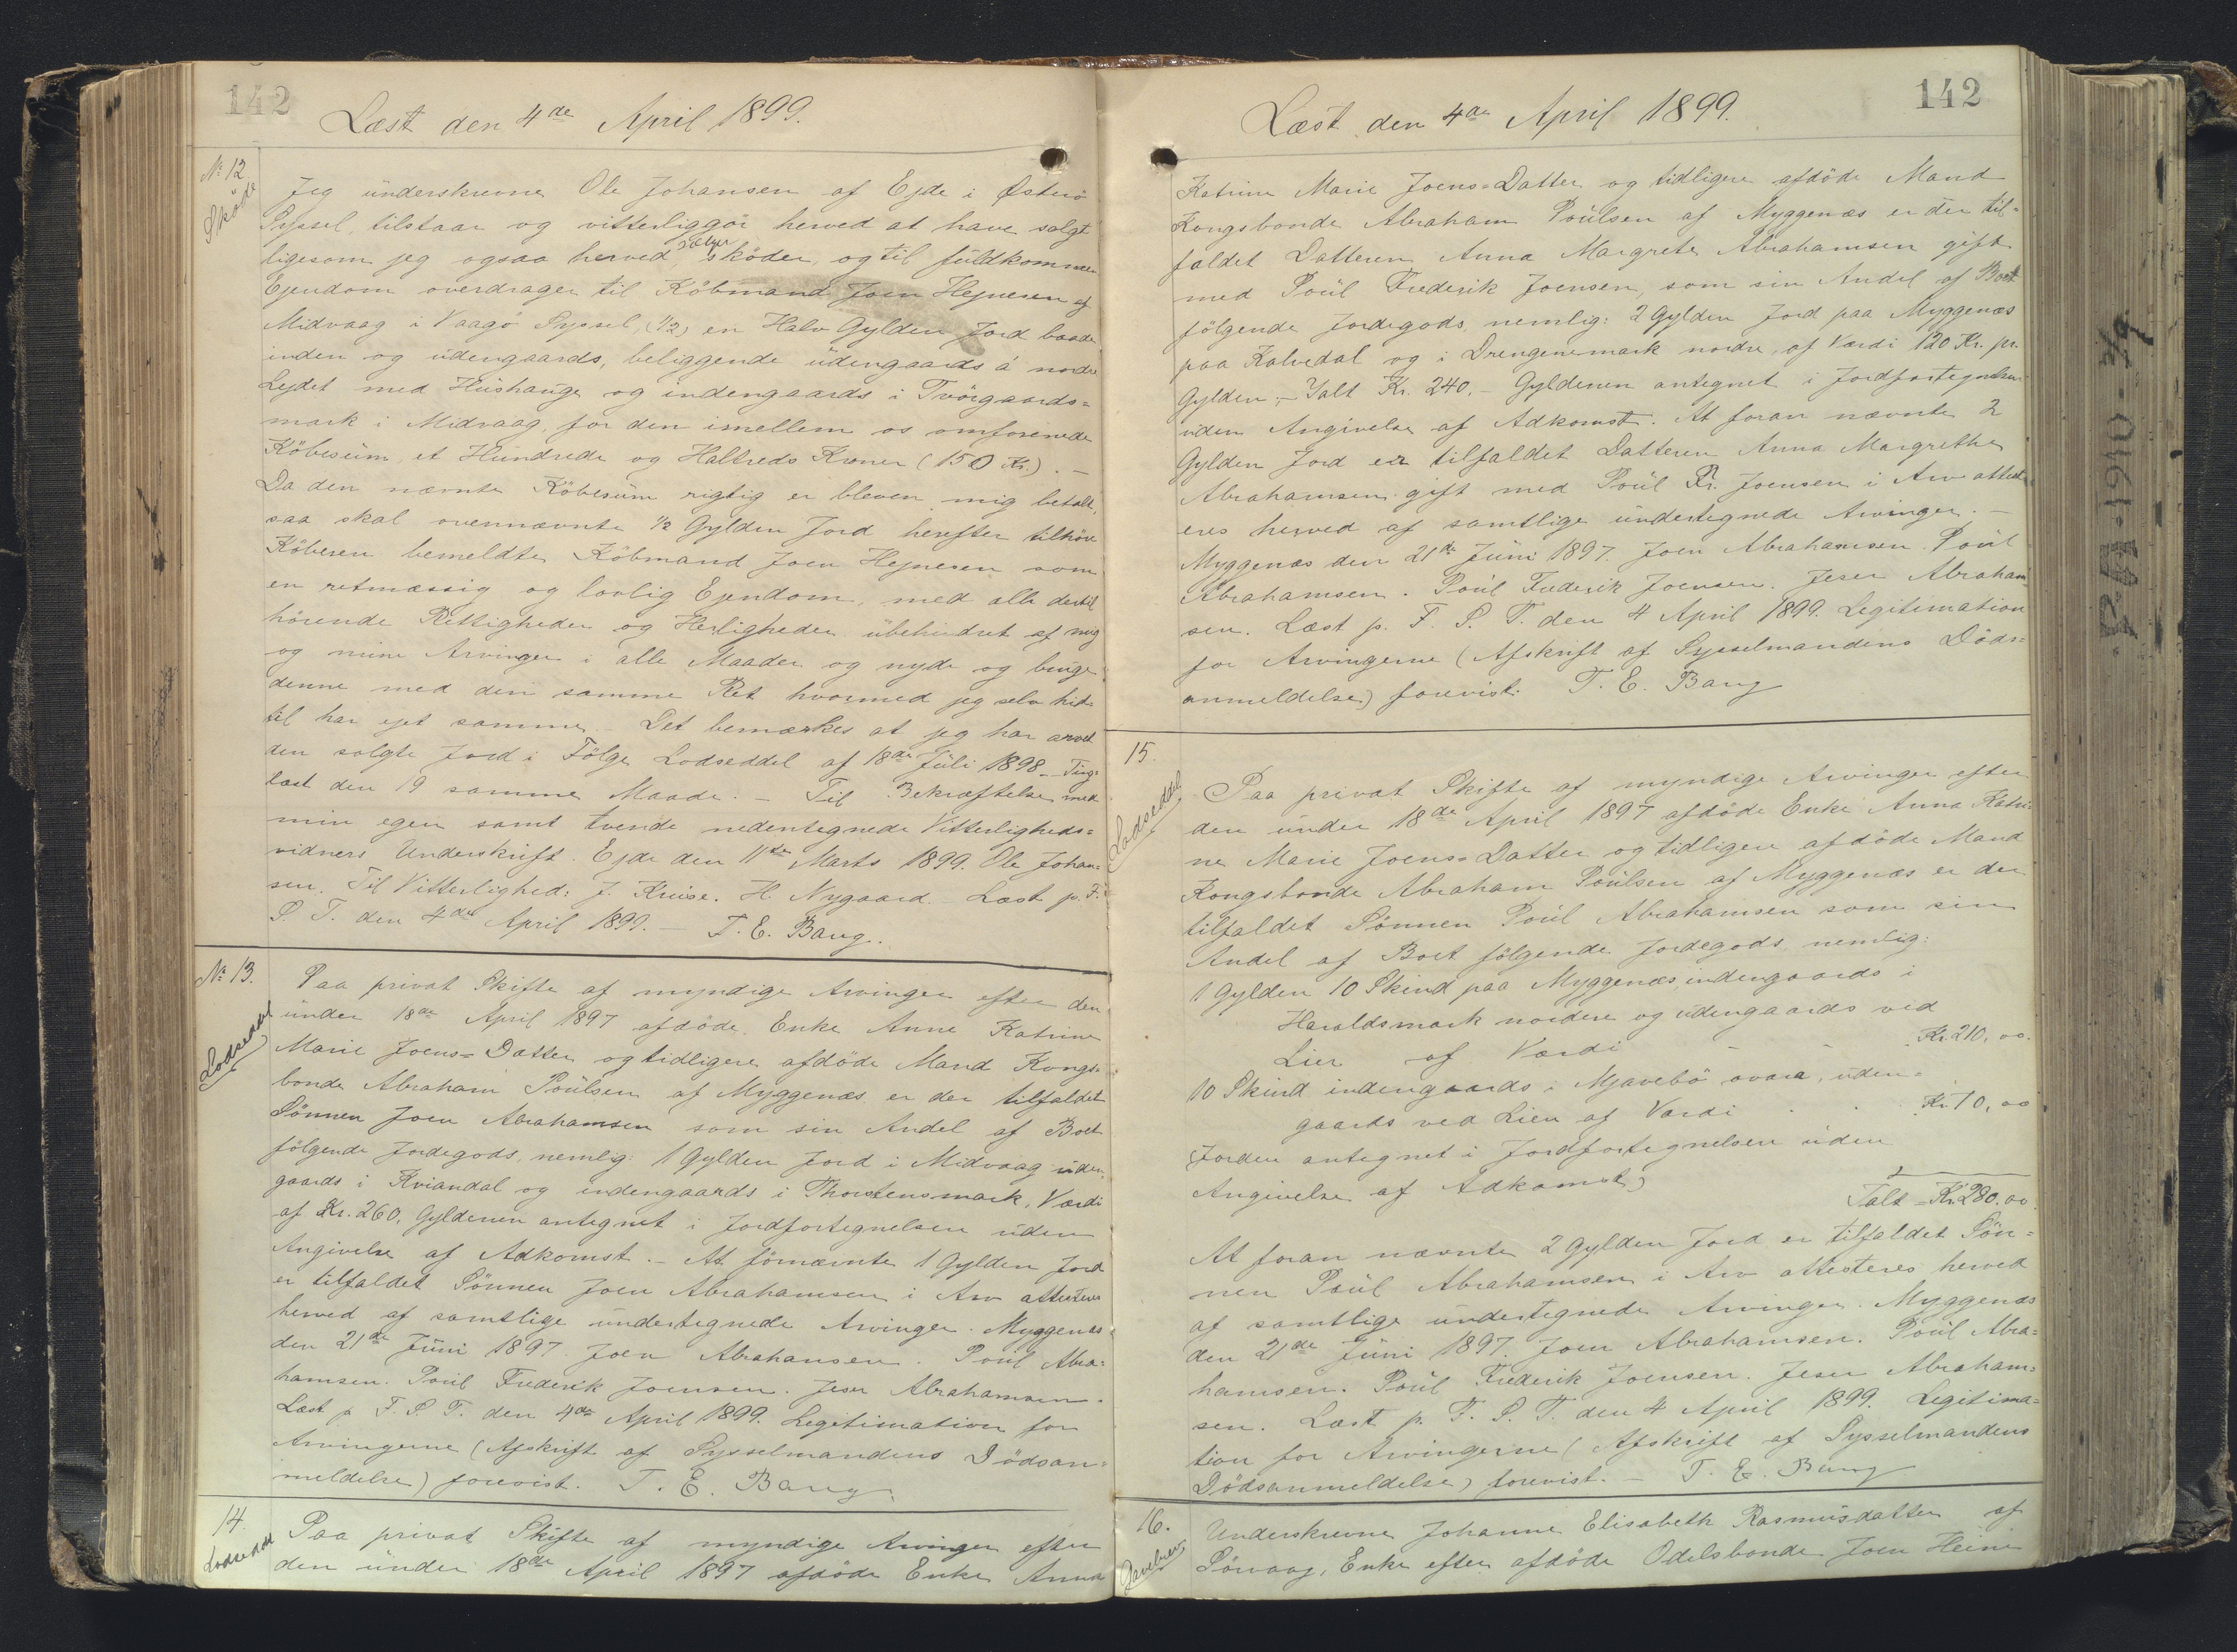 142
Læst den 4de April 1899.
No 12
Sköde
Jeg underskrevne Ole Johansen af Ejde i Österö
Syssel, tilstaar og vitterliggör herved at have solgt
ligesom jeg ogsaa herved sælger sköder, og til fuldkommen
Ejendom overdrager til Köbmand Joen Hejnesen af
Midvaag i Vaagö Syssel, (1/2) en Halv Gylden Jord baade
inden og udengaards, beliggende udengaards á nordre
Lejdet med Hushauge og indengaards i Tvörgaards=
mark i Midvaag, for den imellem os omforenede
Köbesum, et Hundrede og Haltreds Kroner (150 Kr.). —
Da den nævnte Köbesum rigtig er bleven mig betalt,
saa skal ovennævnte 1/2 Gylden Jord herefter tilhöre
Köberen bemeldte Köbmand Joen Hejnesen som
en retmæssig og lovlig Ejendom, med alle dertil
hörende Rettigheder og Herligheder ubehindret af mig
og mine Arvinger i alle Maader og nyde og bruge
denne med den samme Ret hvormed jeg selv hid=
til har ejet samme. Det bemærkes at jeg har arvet
den solgte Jord i Fölge Lodseddel af 18de Juli 1898 – Ting=
læst den 19 samme Maade. – Til Bekræftelse med
min egen samt tvende nedentegnede Vitterligheds=
vidners Underskrift. Ejde den 11te Marts 1899. Ole Johan=
sen. Til Vitterlighed: J. Kruse. H. Nygaard – Læst p. F.
S. T. den 4de April 1899. — T. E. Bang.
No 13.
Lodseddel
Paa privat Skifte af myndige Arvinger efter den
under 18de April 1897 afdöde Enke Anne Katrine
Marie Joens=Datter og tidligere afdöde Mand Kongs=
bonde Abraham Poulsen af Myggenæs er der tilfaldet
Sönnen Joen Abrahamsen som sin Andel af Boet
fölgende Jordegods, nemlig: 1 Gylden Jord i Midvaag uden=
gaards i Kviandal og indengaards i Thorstensmark, Værdi
af Kr. 260. Gyldenen antegnet i Jordfortegnelsen uden
Angivelse af Adkomst. – At förnævnte 1 Gylden Jord
er tilfaldet Sönnen Joen Abrahamsen i Arv attesteres
herved af samtlige undertegnede Arvinger. Myggenæs
den 21de Juni 1897. Joen Abrahamsen. Poul Abra=
hamsen. Poul Frederik Joensen. Jeser Abrahamsen.
Læst p. F. S. T. den 4de April 1899. Legitimation for
Arvingerne (Afskrift af Sysselmandens Dödsan=
meldelse) forevist. T. E. Bang.
14.
Lodseddel
Paa privat Skifte af myndige Arvinger efter
den under 18de April 1897 afdöde Enke Anna
142
Læst den 4de April 1899.
Katrine Marie Joens=Datter og tidligere afdöde Mand
Kongsbonde Abraham Poulsen af Myggenæs er der til=
faldet Datteren Anna Margrete Abrahamsen gift
med Poul Frederik Joensen, som sin Andel af Boet
fölgende Jordegods, nemlig: 2 Gylden Jord paa Myggenæs
paa Kalvedal og i Drengenesmark nordre, af Værdi 120 Kr. pr.
Gylden, – Ialt Kr. 240. – Gyldenen antegnet i Jordfortegnelsen
uden Angivelse af Adkomst. At foran nævnte 2
Gylden Jord er tilfaldet Datteren Anna Margrethe
Abrahamsen gift med Poul Fr. Joensen i Arv attest
eres herved af samtlige undertegnede Arvinger. —
Myggenæs den 21de Juni 1897. Joen Abrahamsen. Poul
Abrahamsen. Poul Frederik Joensen. Jeser Abraham
sen. Læst p. F. S. T. den 4 April 1899. Legitimation
for Arvingerne (Afskrift af Sysselmandens Döds=
anmeldelse) forevist. T. E. Bang
15.
Lodseddel
Paa privat Skifte af myndige Arvinger efter
den under 18de April 1897 afdöde Enke Anna Katri=
ne Marie Joens=Datter og tidligere afdöde Mand
Kongsbonde Abraham Poulsen af Myggenæs er der
tilfaldet Sönnen Poul Abrahamsen som sin
Andel af Boet fölgende Jordegods nemlig:
1 Gylden 10 Skind paa Myggenæs, indengaards i
Haraldsmark nordere og udengaards ved
Lier af Værdi - - Kr. 210,00.
10 Skind indengaards i Mjavebö ovara, uden=
gaards ved Lien af Værdi . . Kr. 70,00
(Jorden antegnet i Jordfortegnelsen uden
Angivelse af Adkomst)
Ialt = Kr. 280.00.
At foran nævnte 2 Gylden Jord er tilfaldet Sön=
nen Poul Abrahamsen i Arv attesteres herved
af samtlige undertegnede Arvinger. Myggenæs
den 21de Juni 1897. Joen Abrahamsen. Poul Abra=
hamsen. Poul Frederik Joensen. Jeser Abraham=
sen. Læst p. F. S. T. den 4 April 1899. Legitima=
tion for Arvingerne (Afskrift af Sysselmandens
Dödsanmeldelse) forevist. – T. E. Bang
16.
Underskrevne Johanne Elisabeth Rasmusdatter af
Sörvaag, Enke efter afdöde Odelsbonde Joen Heine